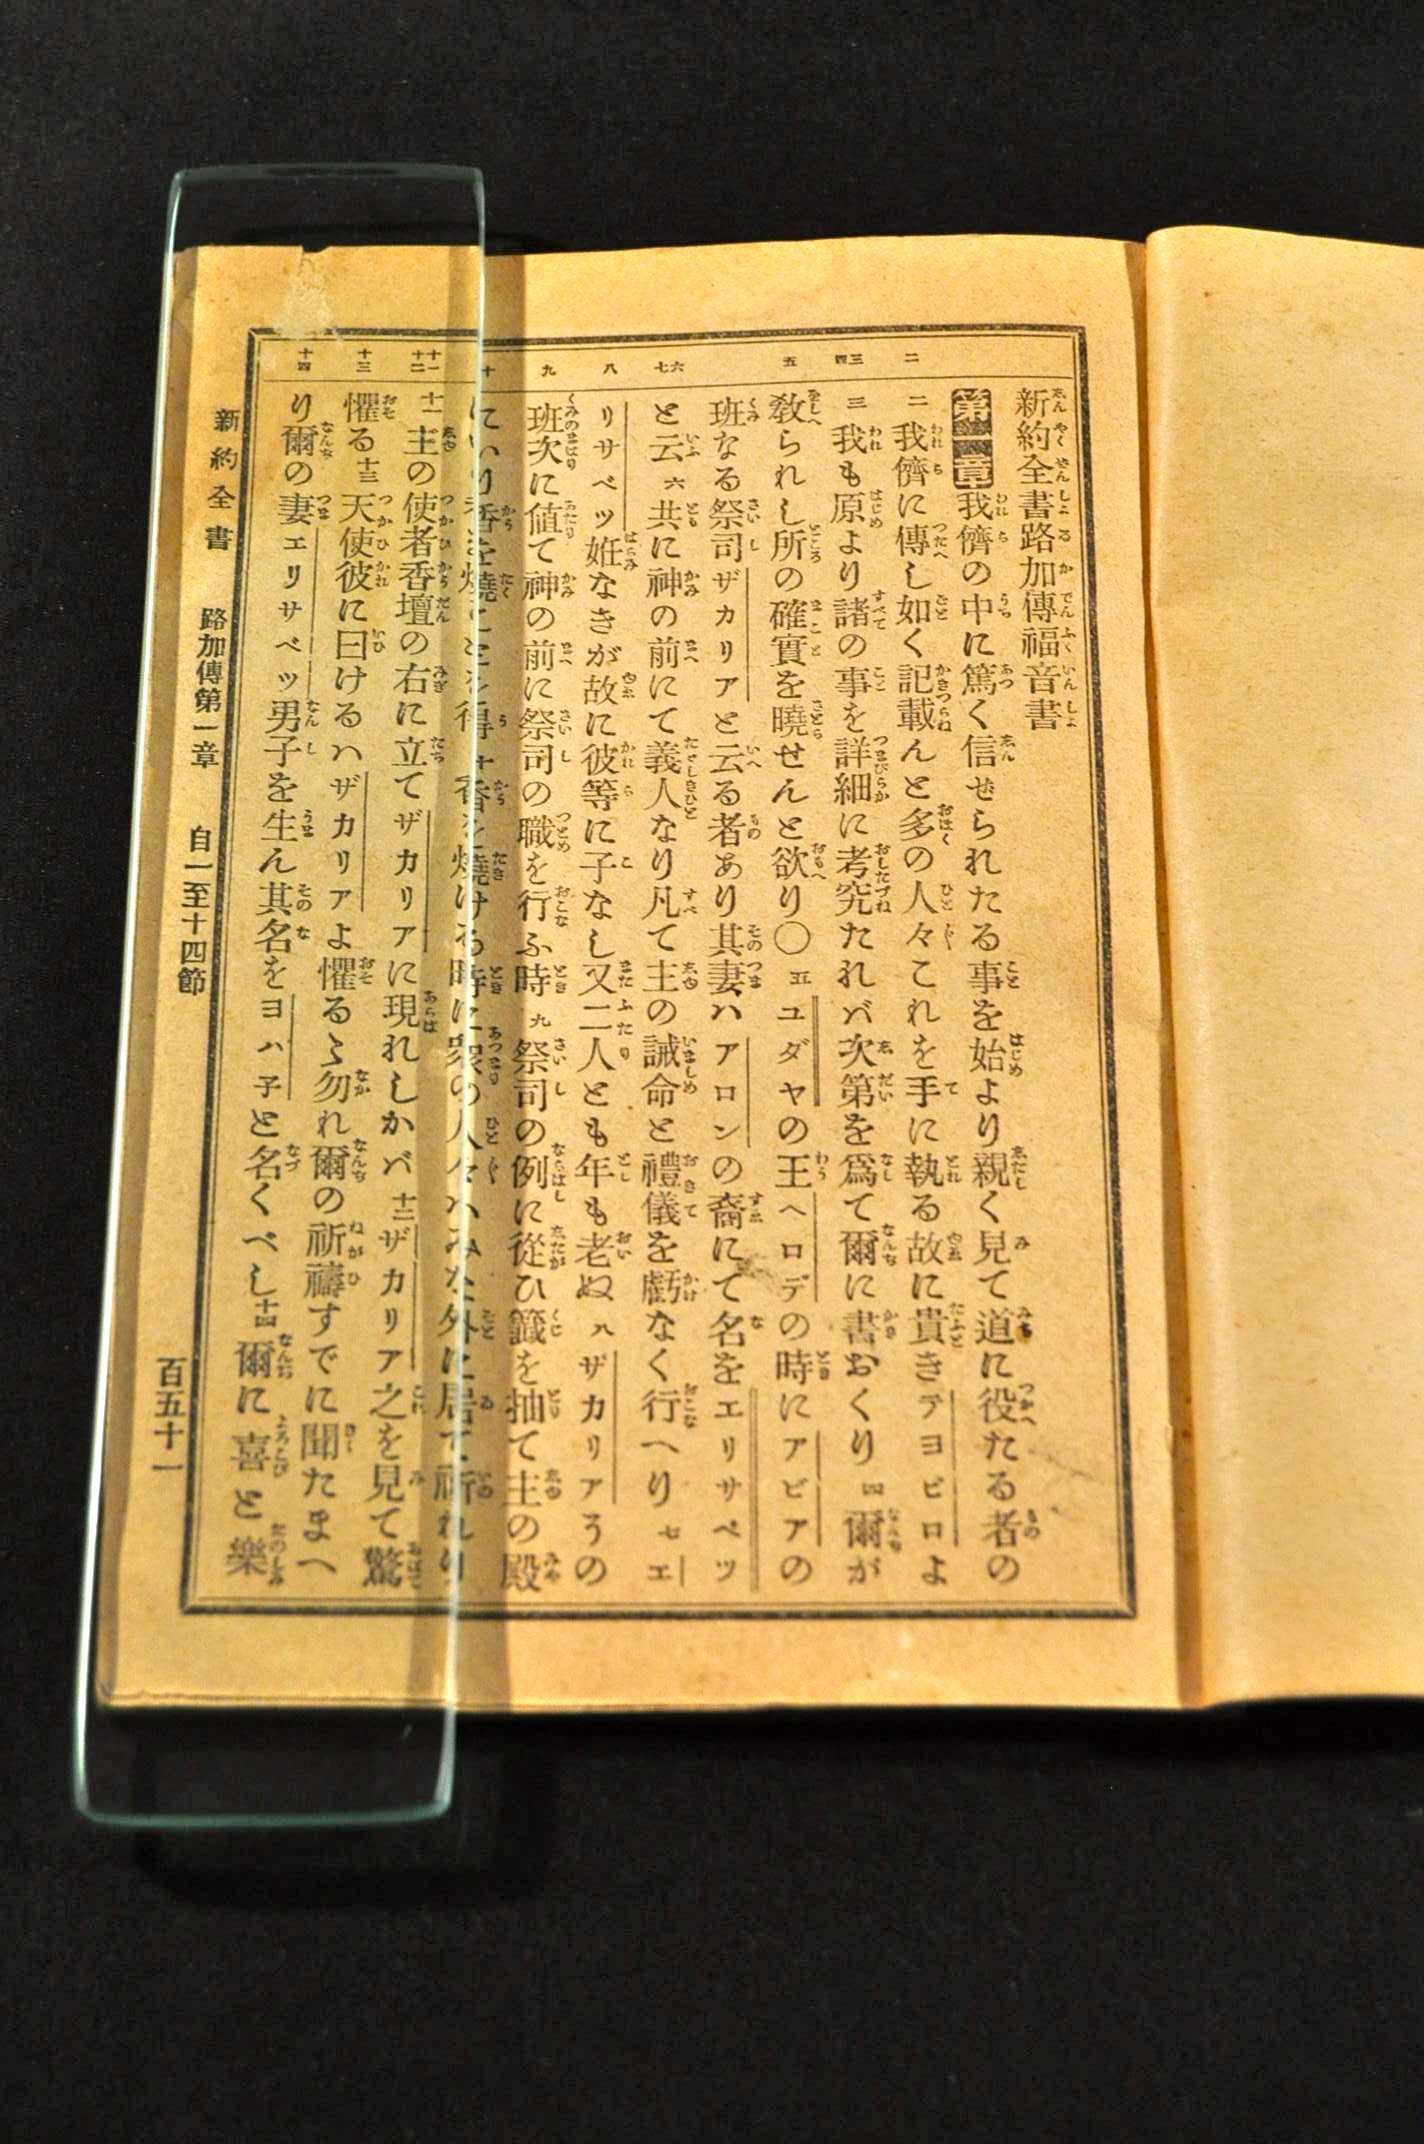 新約全書路加傳福音書
第一章 我儕の中に篤く信ぜられたる事を始より親く見て道に役たる者の
二 我儕に傳し如く記載んと多の人々これを手に執る故に貴きテヨピロよ
三 我も原より諸の事を詳細に考究たれバ次第を爲て爾に書おくり 四 爾が
敎られし所の確實を曉せんと欲り〇 五 ユダヤの王ヘロデの時にアビアの
班なる祭司ザカリアと云る者あり其妻ハアロンの裔にて名をエリサベツ
と云 六 共に神の前にて義人なり凡て主の誡命と禮儀を虧なく行へり 七 エ
リサベツ姙なきが故に彼等に子なし又二人とも年も老ぬ 八 ザカリアその
班次に値て神の前に祭司の職を行ふ時 九 祭司の例に從ひ籤を抽て主の殿
にいり香を燒ことを得 十 香を燒ける時に衆の人々ハみな外に居て祈れり
十一 主の使者香壇の右に立てザカリアに現れしかバ 十二 ザカリア之を見て驚
懼る 十三 天使彼に曰けるハザカリアよ懼るゝ勿れ爾の祈禱すでに聞たまへ
り爾の妻エリサベツ男子を生ん其名をヨハ子と名くべし 十四 爾に喜と樂
二 三 四 五 六 七 八 九 十 十一 十二 十三 十四
新約全書 路加傳第一章 自一至十四節 百五十一